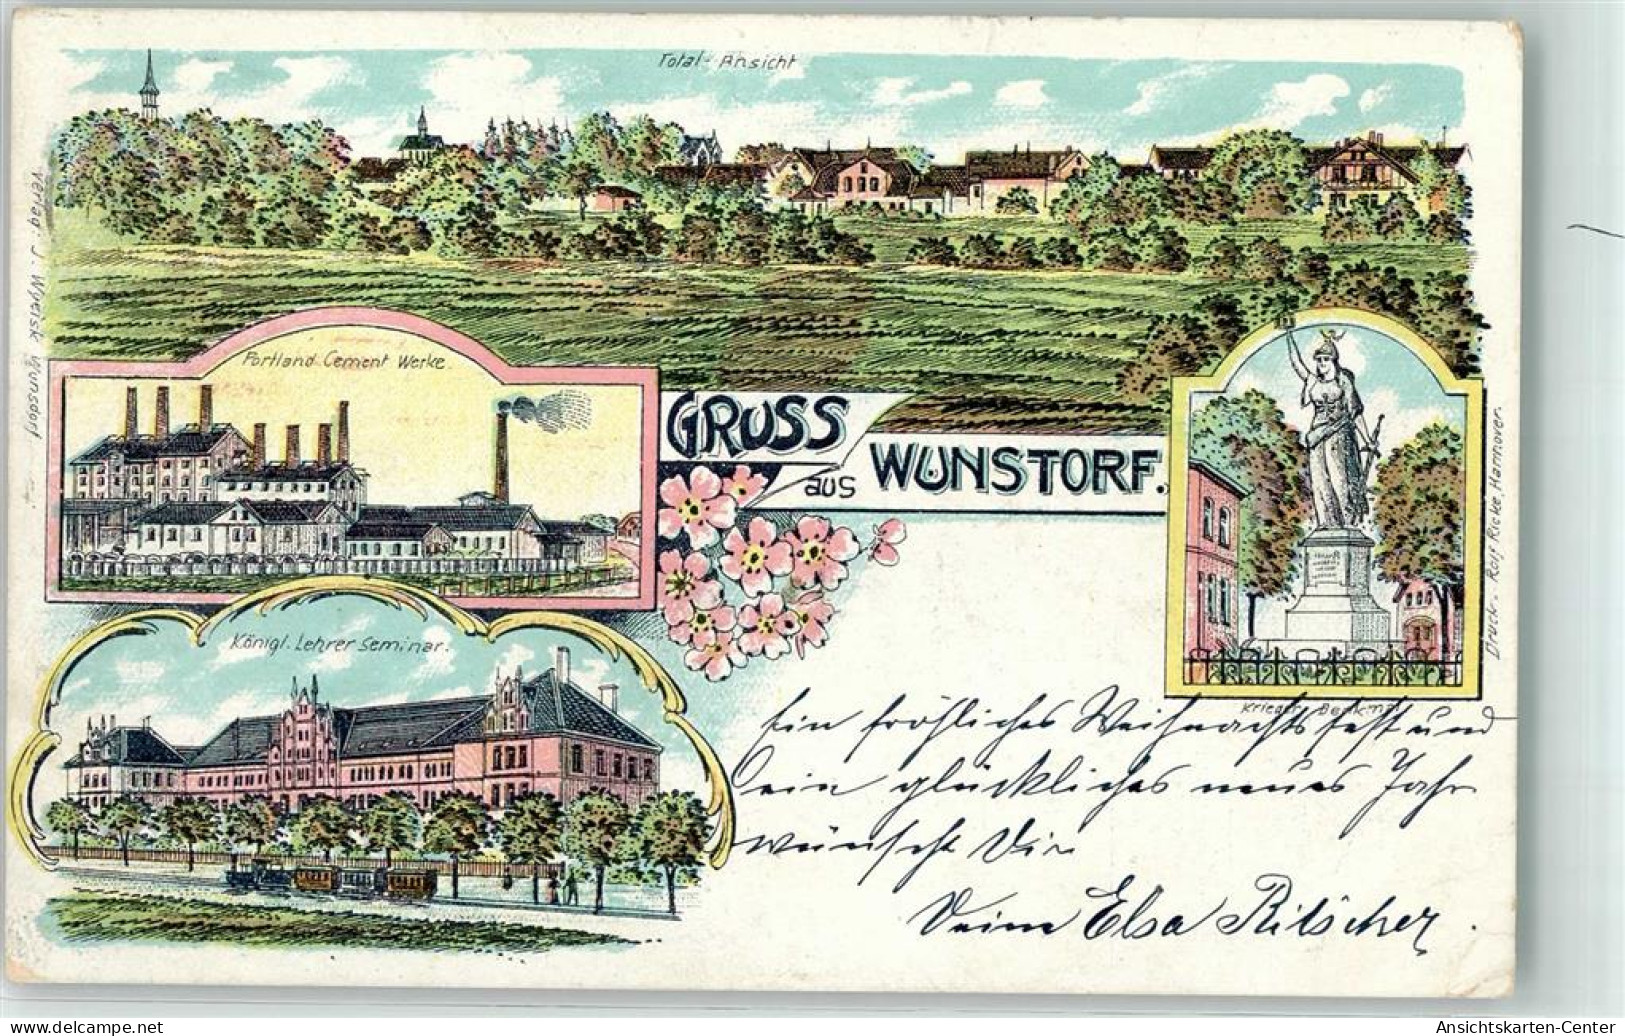 Total-Ansicht
Verlag. J. Wyeisk Wunsdorf.
Portland Cement Werke.
GRUSS
aus WUNSTORF.
Königl. Lehrer Seminar.
Krieger Denkmal
Druck. Rolf Ricke, Hannover.
Ein fröhliches Weihnachtsfest und
ein glückliches neues Jahr
wünscht Dir
Deine Elsa Ritscher.
www.delcampe.net
Ansichtskarten-Center